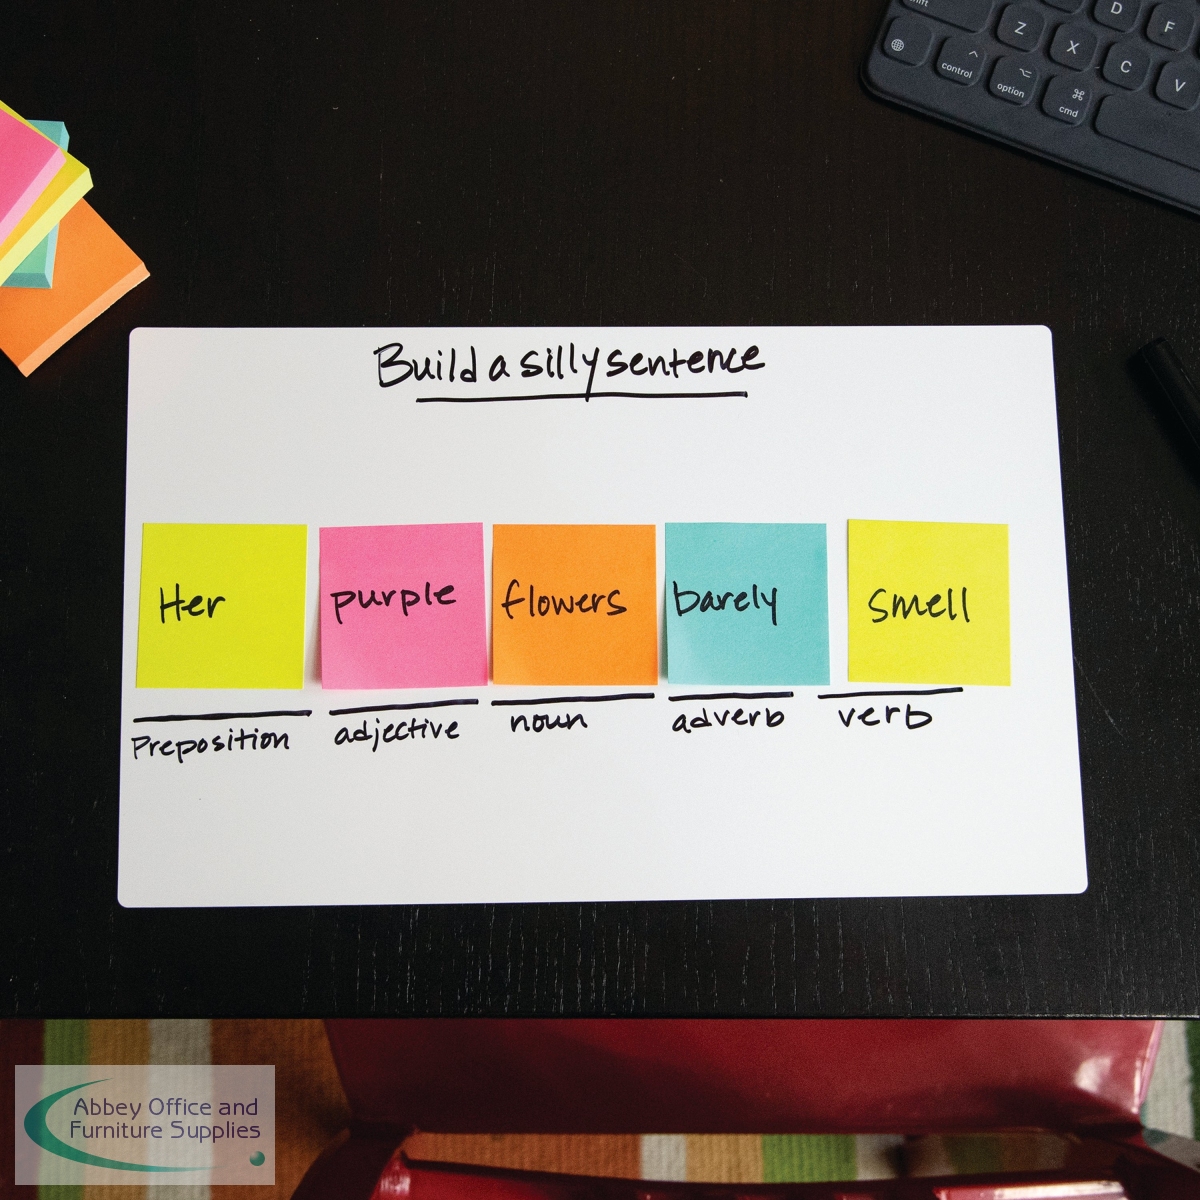 shift
Z
X
C
V
D
F
control
option
cmd
Build a silly sentence
Her
purple
flowers
barely
smell
Preposition
adjective
noun
adverb
verb
Abbey Office and
Furniture Supplies